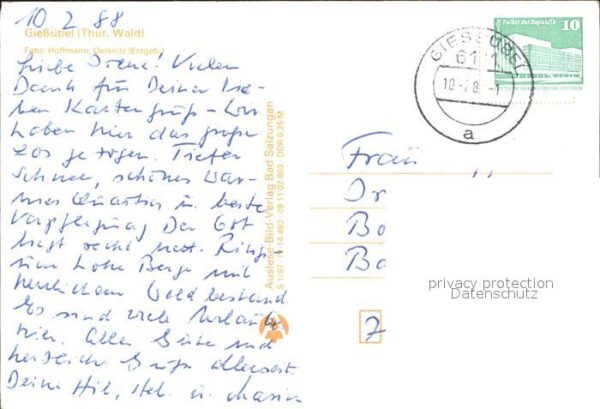 10 2 88
Gießübel (Thür. Wald)
Foto: Hoffmann, Oelsnitz (Erzgeb.)
Liebe Irene! Vielen
Dank für Deinen lie-
ben Kartengruß - Wir
haben hier das große
Los gezogen. Tiefer
Schnee, schönes war-
mes Quartier u. beste
Verpflegung Der Ort
liegt recht nett. Rings-
um hohe Berge mit
herrlichem Waldbestand
Es sind viele Urlauber
hier. Alles Gute und
herzliche Grüße allerseits
Deine Hil, Hel. u.
Auslese-Bild-Verlag Bad Salzungen
S 1/87 14 483 09 11 02 802 DDR 0,25 M
Palast der Republik
10
GIESSÜBEL
611
a
Frau
Ir
Bo
Ba
7
privacy protection
Datenschutz